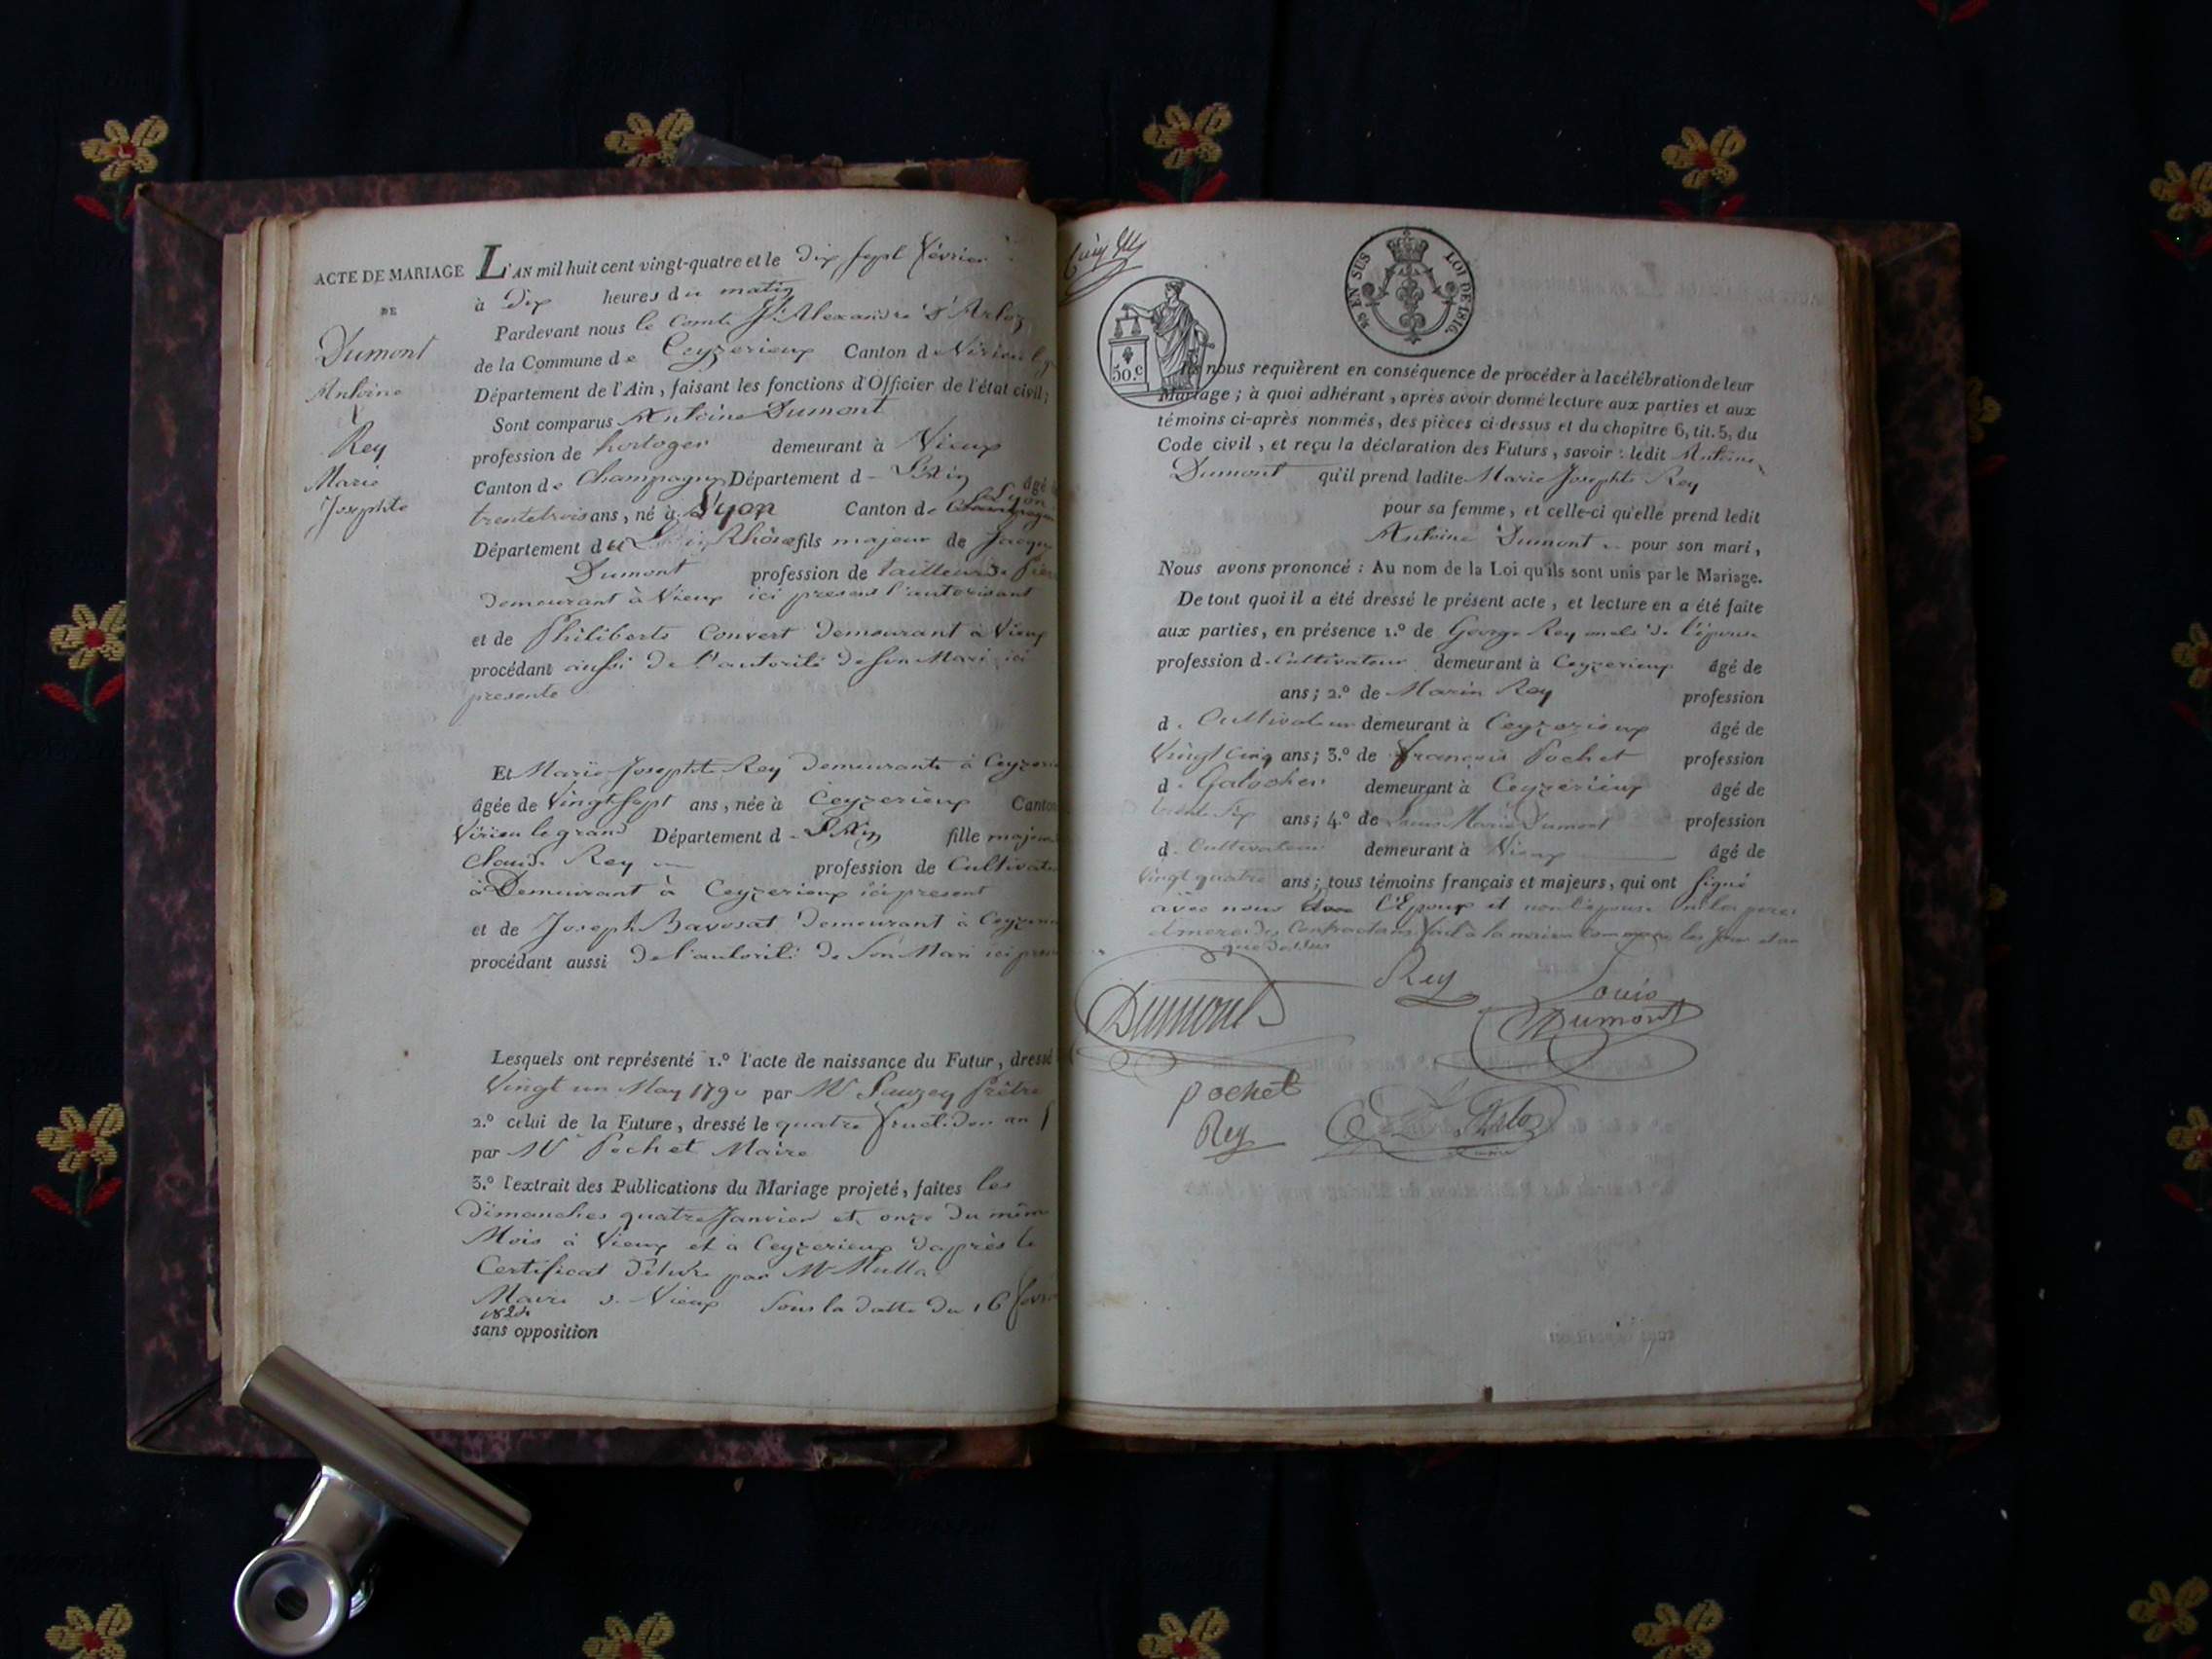 ACTE DE MARIAGE
DE
Dumont
Antoine
&
Rey
Marie
Josephte
L'AN mil huit cent vingt-quatre et le dix sept février
à dix heures du matin
Pardevant nous le Comte Alexandre d'Arloz
de la Commune de Ceyzerieux Canton de Virieu
Département de l'Ain, faisant les fonctions d'Officier de l'état civil;
Sont comparus Antoine Dumont
profession de horloger demeurant à Vieux
Canton de Champagne Département d L'Ain âgé
trentetrois ans, né à Lyon Canton de Lyon
Département du Rhône fils majeur de Jacque
Dumont profession de tailleur de Pier
demeurant à Vieux ici present l'autorisant
et de Philiberte Convert demeurant à Vieux
procédant aussi de l'autorité de son Mari ici
presente
Et Marie Josephte Rey demeurante à Ceyzeri
âgée de Vingt sept ans, née à Ceyzerieux Canton
Virieu le grand Département d L'Ain fille majeure
Claude Rey profession de Cultivate
à Demeurant à Ceyzerieux ici present
et de Joseph Bavosat demeurant à Ceyzerieu
procédant aussi de l'autorité de Son Mari ici presen
Lesquels ont représenté 1.º l'acte de naissance du Futur, dressé
Vingt un May 1790 par Mr Prêtre
2.º celui de la Future, dressé le quatre fructidor an
par Mr Pochet Maire
3.º l'extrait des Publications du Mariage projeté, faites les
dimanches quatre Janvier et onze du même
Mois à Vieux et à Ceyzerieux daprès le
Certificat délivré par Mr
Maire de Vieux Sous la datte du 16 fevri
1824
sans opposition
50.c
EN SUS LOI DE 1816.
Ils nous requièrent en conséquence de procéder à la célébration de leur
Mariage; à quoi adhérant, après avoir donné lecture aux parties et aux
témoins ci-après nommés, des pièces ci-dessus et du chapitre 6, tit. 5, du
Code civil, et reçu la déclaration des Futurs, savoir: ledit Antoine
Dumont qu'il prend ladite Marie Josephte Rey
pour sa femme, et celle-ci qu'elle prend ledit
Antoine Dumont pour son mari,
Nous avons prononcé: Au nom de la Loi qu'ils sont unis par le Mariage.
De tout quoi il a été dressé le présent acte, et lecture en a été faite
aux parties, en présence 1.º de George Rey oncle de l'épouse
profession d Cultivateur demeurant à Ceyzerieux âgé de
ans; 2.º de Marin Rey profession
d. Cultivateur demeurant à Ceyzerieux âgé de
Vingt Cinq ans; 3.º de françois Pochet profession
d. Galocher demeurant à Ceyzérieux âgé de
trente Six ans; 4.º de Louis Marie Dumont profession
d. Cultivateur demeurant à Vieux âgé de
Vingt quatre ans; tous témoins français et majeurs, qui ont signé
avec nous L'Epoux et non l'épouse peres
et meres des Contractans fait à la mairie les jour et an
que dessus
Rey
Louis
Dumont
Dumont
pochet
Rey
d'Arloz